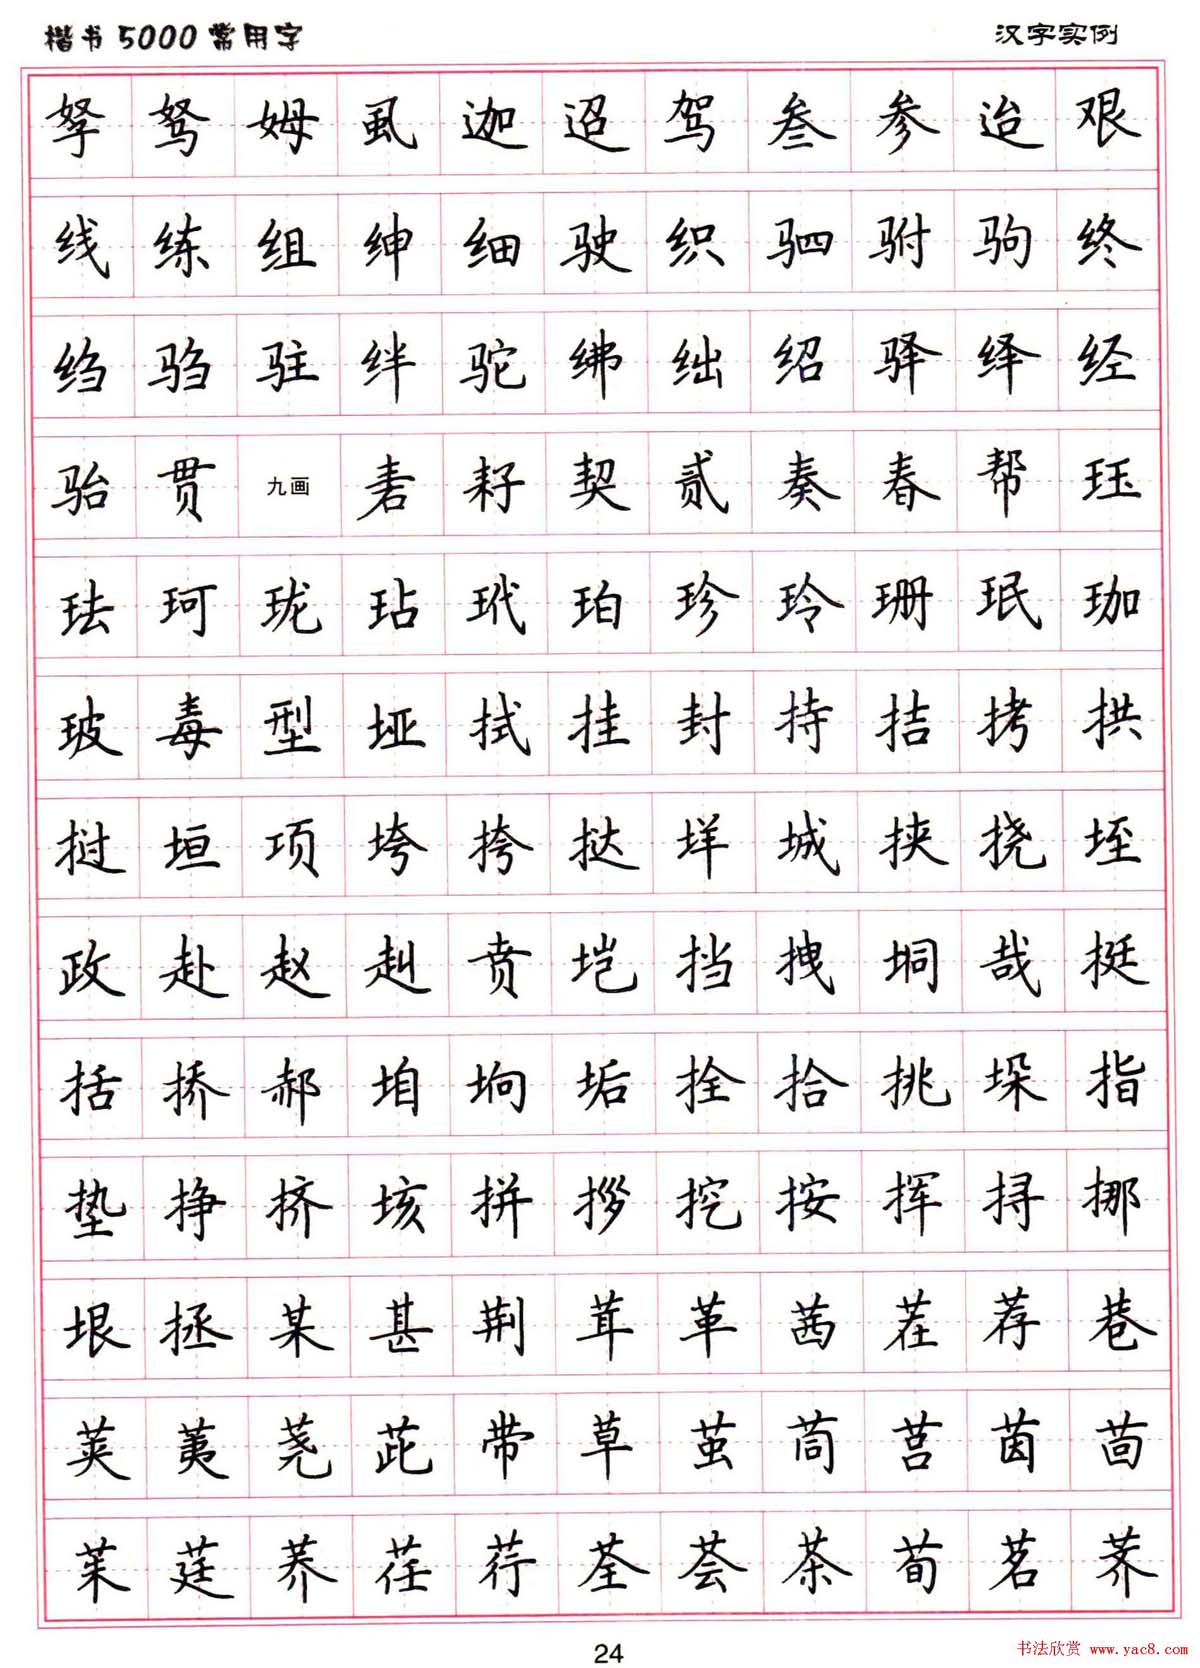 楷书5000常用字 汉字实例
孥 驽 姆 虱 迦 迢 驾 叁 参 迨 艰
线 练 组 绅 细 驶 织 驷 驸 驹 终
绉 驺 驻 绊 驼 绋 绌 绍 驿 绎 经
骀 贯 九画 砉 耔 契 贰 奏 春 帮 珏
珐 珂 珑 玷 玳 珀 珍 玲 珊 珉 珈
玻 毒 型 垭 拭 挂 封 持 拮 拷 拱
挝 垣 项 垮 挎 挞 垟 城 挟 挠 垤
政 赴 赵 赳 贲 垲 挡 拽 垌 哉 挺
括 挢 郝 垍 垧 垢 拴 拾 挑 垛 指
垫 挣 挤 垓 拼 拶 挖 按 挥 挦 挪
垠 拯 某 甚 荆 茸 革 茜 茬 荐 巷
荚 荑 荛 茈 带 草 茧 茼 莒 茵 茴
茱 莛 荞 荏 荇 荃 荟 茶 荀 茗 荠
24
书法欣赏 www.yac8.com